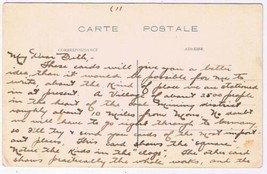 (1)
CARTE POSTALE
CORRESPONDANCE ADRESSE
My Dear Beth,-
These cards will give you a better
idea, than it would be possible for me to
write, about the kind of place we are stationed
in at present. A village of about 2500 people
in the heart of the coal mining district
namely about 10 miles from. No doubt
we will have to go on through to Germany
so I'll try & send you cards of the most import
ant places. This card shows the "square"
Notice the kids in the "clogs". The other card
shows practically the whole works, and the